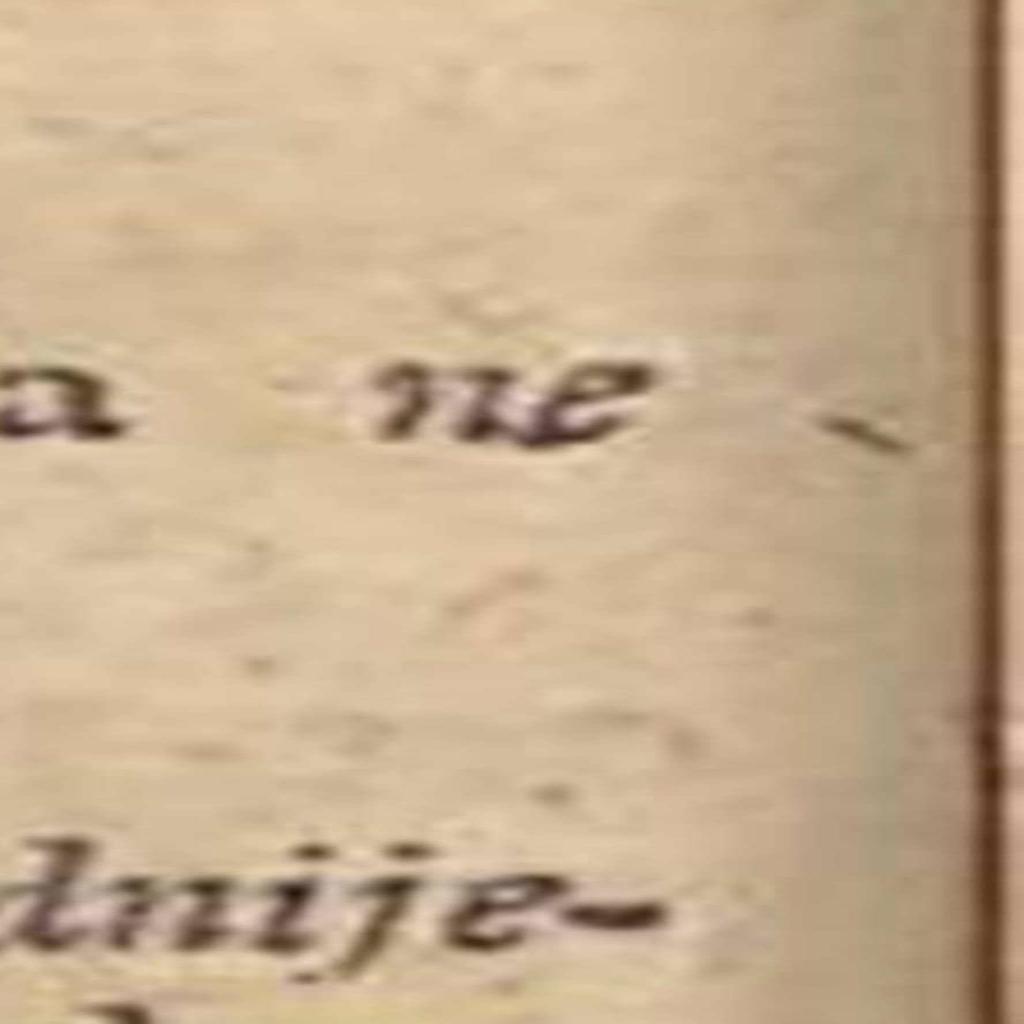 a ne -
dnije-